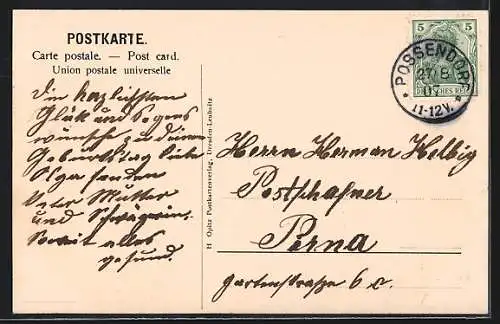 POSTKARTE.
Carte postale. — Post card.
Union postale universelle
Die herzlichsten
Glück und Segens
wünsche zu deinem
Geburtstag liebe
Olga senden
Vater Mutter
und Schwägerin.
Soweit alles
gesund.
H Opitz Postkartenverlag, Dresden-Leubnitz
5 5
DEUTSCHES REICH
POSSENDORF
27 8
07
11-12V.
Herrn Herman Helbig
Postschafner
Perna
Gartenstraße 6 c.